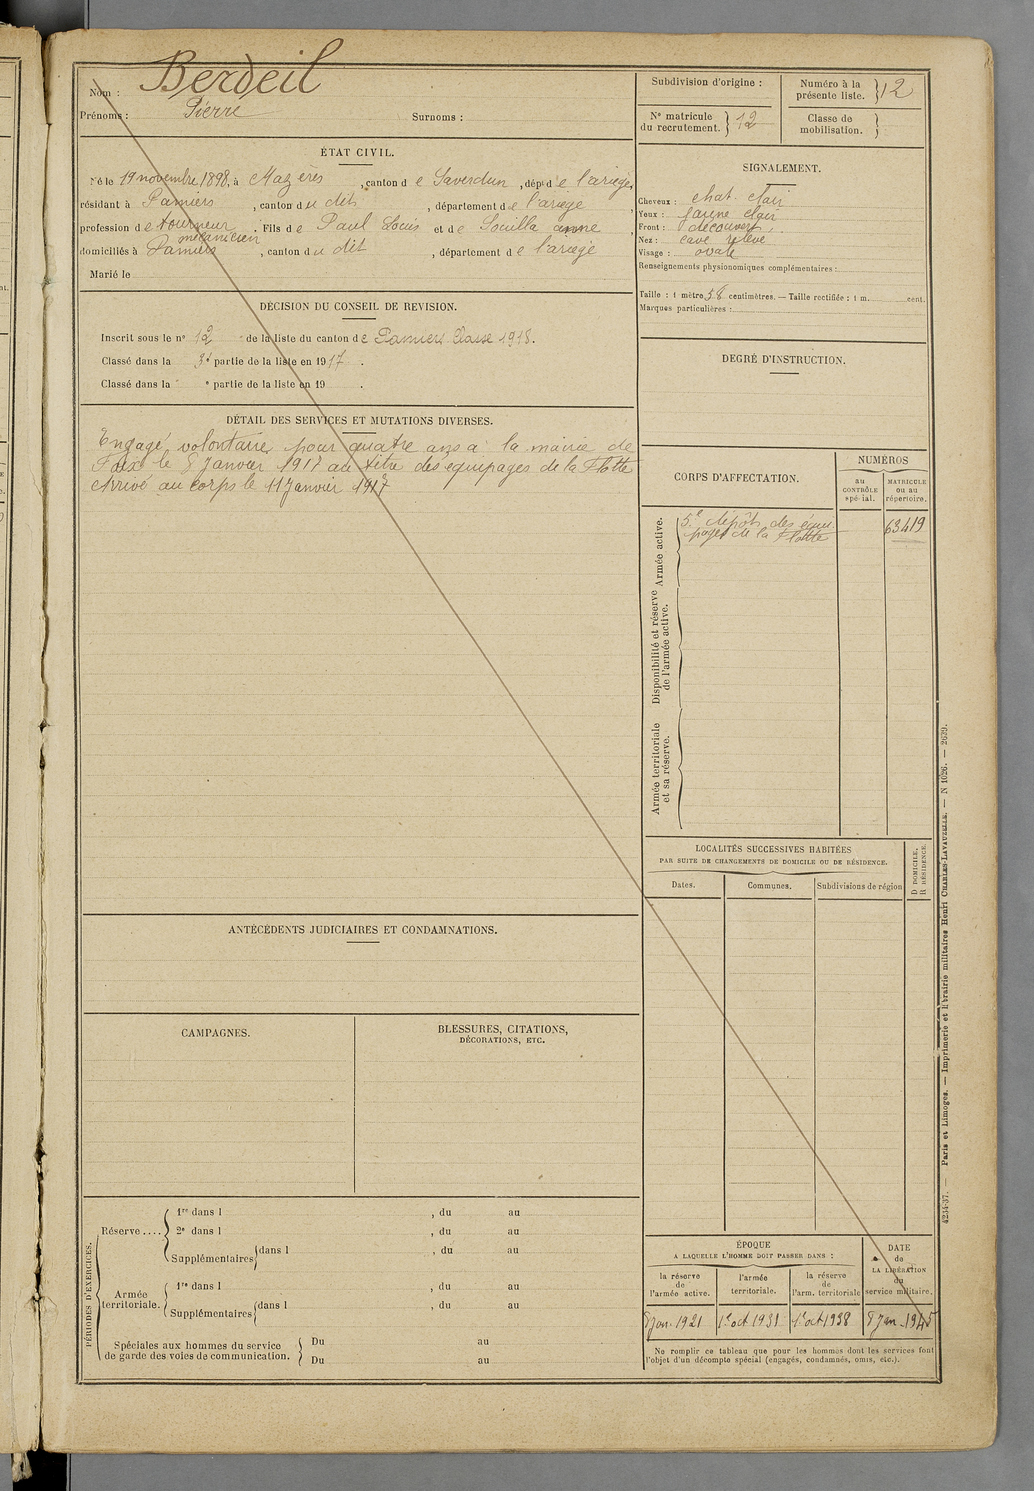 Nom : Berdeil
Prénoms : Pierre Surnoms :
Subdivision d'origine :
Numéro à la présente liste. 12
N° matricule du recrutement. 12
Classe de mobilisation.
ÉTAT CIVIL.
Né le 19 novembre 1898, à Mazères, canton de Saverdun, dépt de l'ariège,
résidant à Pamiers, canton du dit, département de l'ariège
profession de tourneur mécanicien. Fils de Paul Louis et de Souilla anne,
domiciliés à Pamiers, canton du dit, département de l'ariège
Marié le
DÉCISION DU CONSEIL DE REVISION.
Inscrit sous le n° 12 de la liste du canton de Pamiers Classe 1918.
Classé dans la 3e partie de la liste en 1917.
Classé dans la e partie de la liste en 19 .
DÉTAIL DES SERVICES ET MUTATIONS DIVERSES.
Engagé volontaire pour quatre ans à la mairie de
Foix le 8 Janvier 1917 au titre des équipages de la Flotte
Arrivé au corps le 11 Janvier 1917
ANTÉCÉDENTS JUDICIAIRES ET CONDAMNATIONS.
CAMPAGNES.
BLESSURES, CITATIONS,
DÉCORATIONS, ETC.
PÉRIODES D'EXERCICES.
Réserve....
1re dans l , du au
2e dans l , du au
Supplémentaires dans l , du au
Armée territoriale.
1re dans l , du au
Supplémentaires dans l , du au
Spéciales aux hommes du service
de garde des voies de communication.
Du au
Du au
SIGNALEMENT.
Cheveux : chat. clair
Yeux : jaune clair
Front : découvert
Nez : cavé relevé
Visage : ovale
Renseignements physionomiques complémentaires :
Taille : 1 mètre 58 centimètres. — Taille rectifiée : 1 m. cent.
Marques particulières :
DEGRÉ D'INSTRUCTION.
CORPS D'AFFECTATION.
NUMÉROS
au CONTRÔLE spécial.
MATRICULE ou au répertoire.
Armée active.
5e dépôt des équi
pages de la Flotte
63419
Disponibilité et réserve de l'armée active.
Armée territoriale et sa réserve.
LOCALITÉS SUCCESSIVES HABITÉES
PAR SUITE DE CHANGEMENTS DE DOMICILE OU DE RÉSIDENCE.
Dates. Communes. Subdivisions de région
D DOMICILE.
R RÉSIDENCE.
ÉPOQUE
A LAQUELLE L'HOMME DOIT PASSER DANS :
la réserve de l'armée active.
l'armée territoriale.
la réserve de l'arm. territoriale
DATE de LA LIBÉRATION du service militaire.
8 Jan. 1921 1er oct 1931 1er oct 1938 8 Jan. 1945
Ne remplir ce tableau que pour les hommes dont les services font
l'objet d'un décompte spécial (engagés, condamnés, omis, etc.).
4234-37. — Paris et Limoges. — Imprimerie et librairie militaires Henri CHARLES-LAVAUZELLE. — N 1026. — 2639.